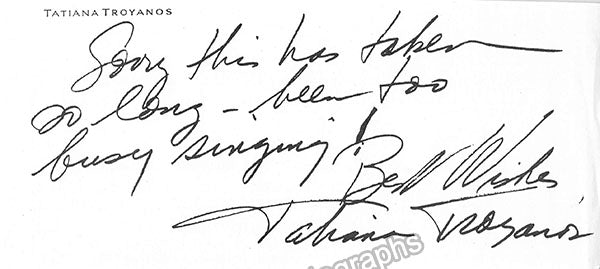 TATIANA TROYANOS
Sorry this has taken
so long – been too
busy singing!
Best Wishes,
Tatiana Troyanos